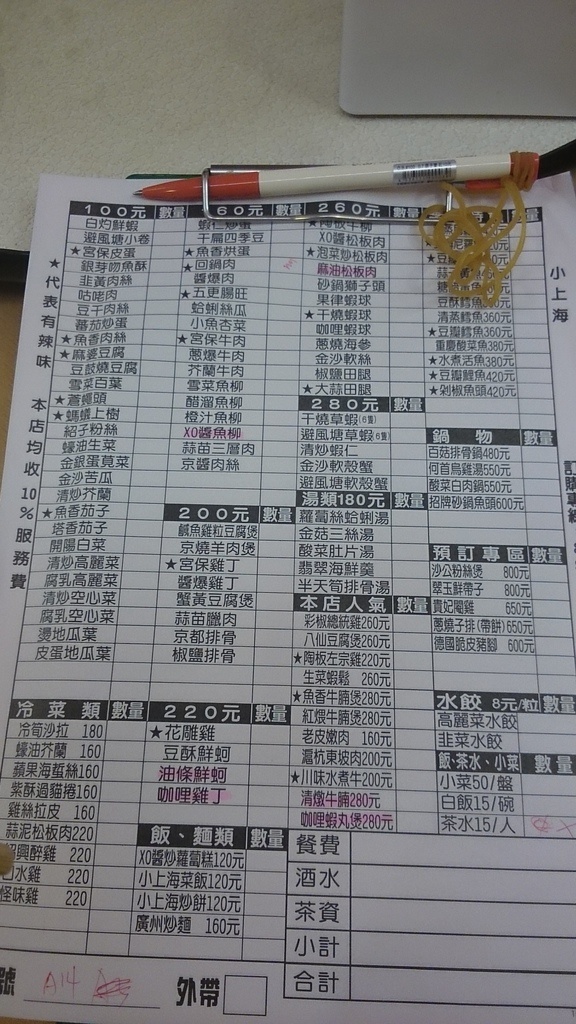 小上海
★代表有辣味 本店均收10%服務費
100元 數量
白灼鮮蝦
避風塘小卷
★宮保皮蛋
銀芽吻魚酥
韭黃肉絲
咕咾肉
豆干肉絲
蕃茄炒蛋
★魚香肉絲
★麻婆豆腐
豆鼓燒豆腐
雪菜百葉
★蒼蠅頭
★螞蟻上樹
紹子粉絲
蠔油生菜
金銀蛋莧菜
金沙苦瓜
清炒芥蘭
★魚香茄子
塔香茄子
開陽白菜
清炒高麗菜
腐乳高麗菜
清炒空心菜
腐乳空心菜
燙地瓜葉
皮蛋地瓜葉
冷菜類 數量
冷筍沙拉 180
蠔油芥蘭 160
蘋果海蜇絲160
紫酥過貓捲160
雞絲拉皮 160
蒜泥松板肉220
興醉雞 220
水雞 220
怪味雞 220
60元 數量
蝦仁炒蛋
干扁四季豆
★魚香烘蛋
★回鍋肉
醬爆肉
★五更腸旺
蛤蜊絲瓜
小魚杏菜
★宮保牛肉
蔥爆牛肉
芥蘭牛肉
雪菜魚柳
醋溜魚柳
橙汁魚柳
XO醬魚柳
蒜苗三層肉
京醬肉絲
200元 數量
鹹魚雞粒豆腐煲
京燒羊肉煲
★宮保雞丁
醬爆雞丁
蟹黃豆腐煲
蒜苗臘肉
京都排骨
椒鹽排骨
220元 數量
★花雕雞
豆酥鮮蚵
油條鮮蚵
咖哩雞丁
飯、麵類 數量
XO醬炒蘿蔔糕120元
小上海菜飯120元
小上海炒餅120元
廣州炒麵 160元
260元 數量
★陶板牛柳
XO醬松板肉
★泡菜炒松板肉
麻油松板肉
砂鍋獅子頭
果律蝦球
★干燒蝦球
咖哩蝦球
蔥燒海參
金沙軟絲
椒鹽田腿
★大蒜田腿
280元 數量
干燒草蝦(6隻)
避風塘草蝦(6隻)
清炒蝦仁
金沙軟殼蟹
避風塘軟殼蟹
湯類180元 數量
蘿蔔絲蛤蜊湯
金菇三絲湯
酸菜肚片湯
翡翠海鮮羹
半天筍排骨湯
本店人氣 數量
彩椒總統雞260元
八仙豆腐煲260元
★陶板左宗雞220元
生菜蝦鬆 260元
★魚香牛腩煲280元
紅煨牛腩煲280元
老皮嫩肉 160元
滬杭東坡肉200元
★川味水煮牛200元
清燉牛腩280元
咖哩蝦丸煲280元
數量
豆酥鱈魚360元
清蒸鱈魚360元
★豆瓣鱈魚360元
重慶酸菜魚380元
★水煮活魚380元
★豆瓣鯉魚420元
★剁椒魚頭420元
鍋物 數量
百菇排骨鍋480元
何首烏雞湯550元
酸菜白肉鍋550元
招牌砂鍋魚頭600元
預訂專區 數量
沙公粉絲煲 800元
翠玉鮮帶子 800元
貴妃閹雞 650元
蔥燒子排(帶餅)650元
德國脆皮豬腳 600元
水餃 8元/粒 數量
高麗菜水餃
韭菜水餃
飯‧茶水、小菜 數量
小菜50/盤
白飯15/碗
茶水15/人
餐費
酒水
茶資
小計
合計
號 A14
外帶